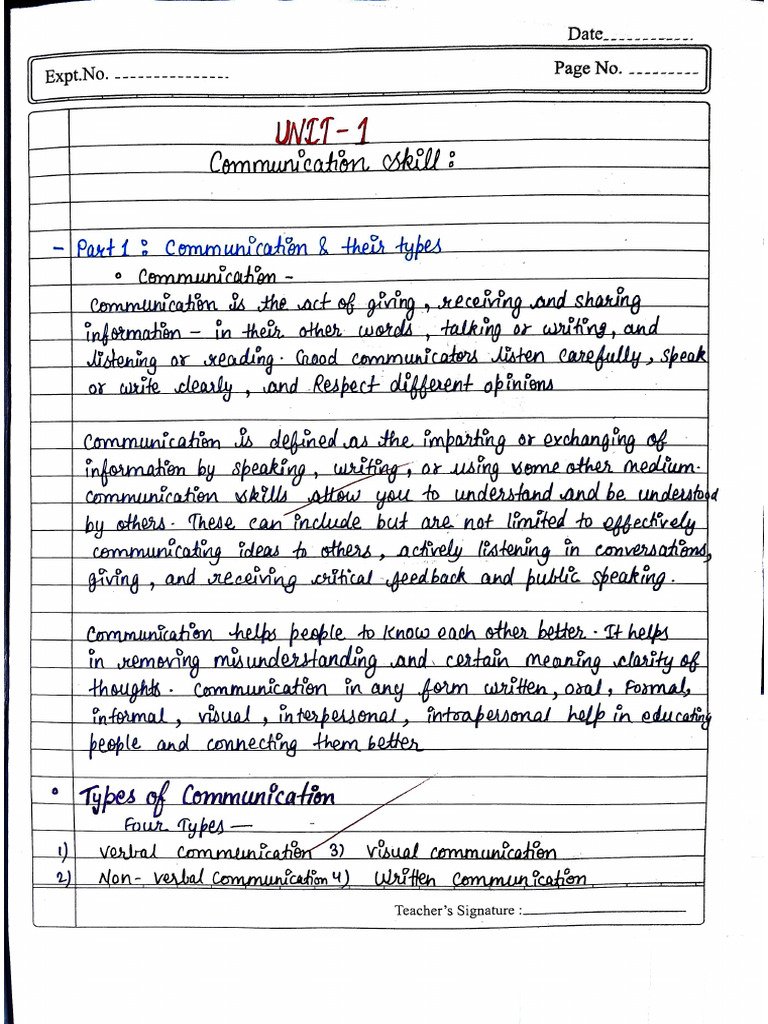 Date
Expt.No.
Page No.
UNIT-1
Communication skill :
- Part 1 : Communication & their types
• Communication -
Communication is the act of giving, receiving and sharing
information - in their other words, talking or writing, and
listening or reading. Good communicators listen carefully, speak
or write clearly, and Respect different opinions
Communication is defined as the imparting or exchanging of
information by speaking, writing, or using some other medium.
communication skills allow you to understand and be understood
by others. These can include but are not limited to effectively
communicating ideas to others, actively listening in conversations,
giving, and receiving critical feedback and public speaking.
Communication helps people to know each other better. It helps
in removing misunderstanding and certain meaning clarity of
thoughts. Communication in any form written, oral, Formal,
informal, visual, interpersonal, intrapersonal help in educating
people and connecting them better
• Types of Communication
Four Types —
1) Verbal communication 3) Visual communication
2) Non-verbal Communication 4) Written communication
Teacher's Signature :